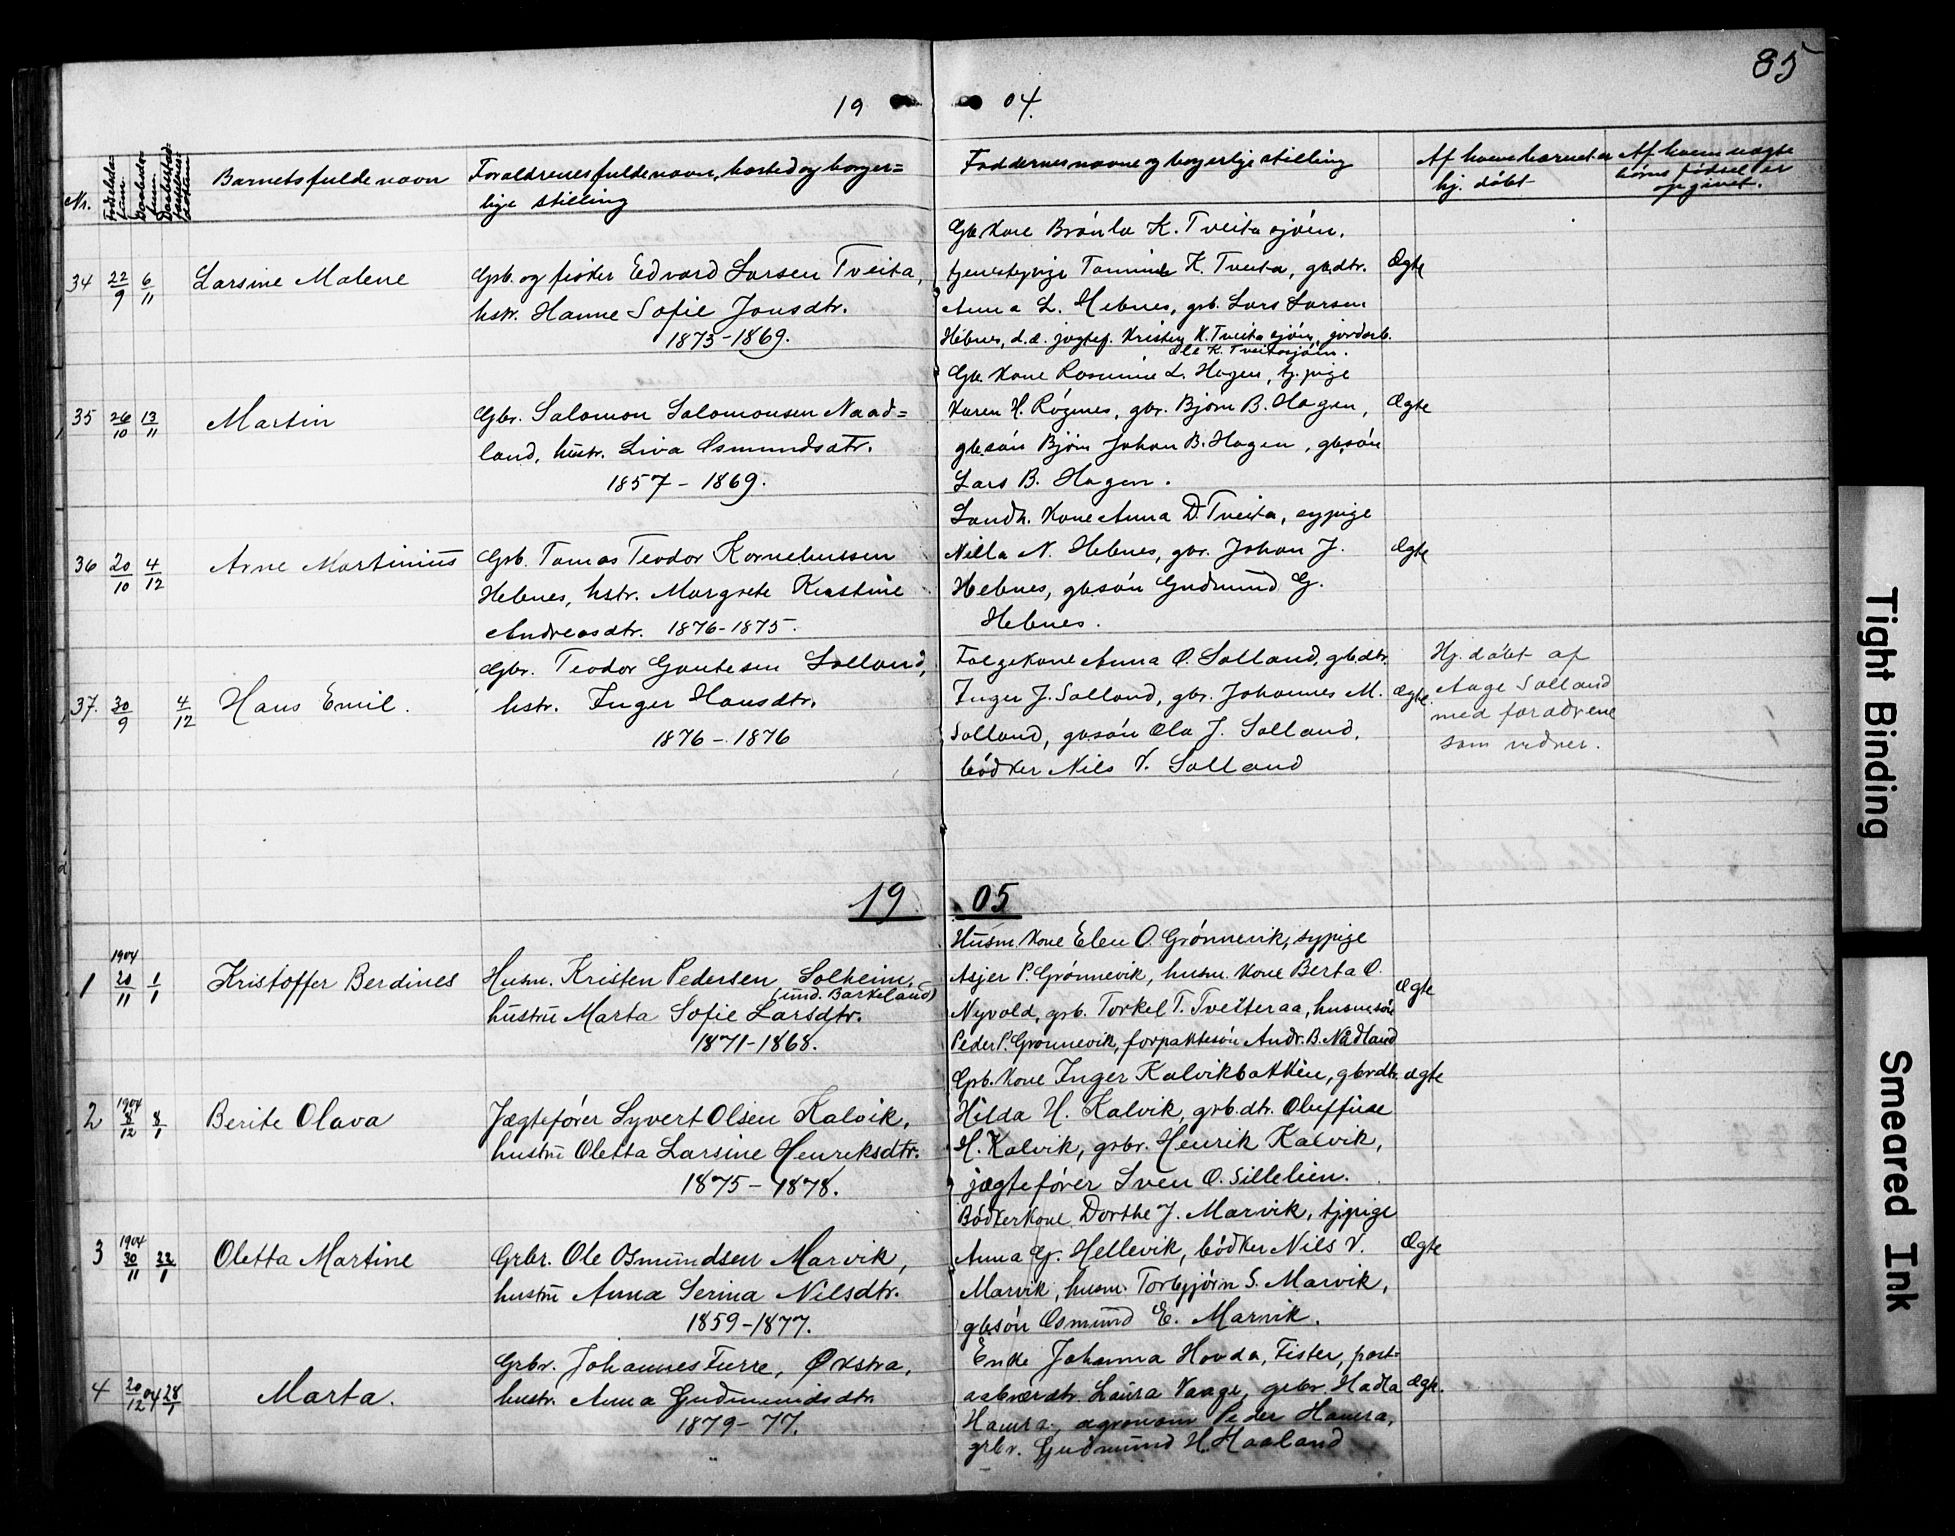 85
19 04.
Nr.
Barnets fulde navn
Forældrenes fulde navn, bosted og borger=
lige stilling
Faddernes navne og borgerlige stilling
Af hvem barnet er
hj. døbt
Af hvem uægte
børns fødsel er
opgivet.
34 22/9 6/11 Larsine Malene
Grb. og fisker Edvard Larsen Tveita,
hstr. Hanne Sofie Jonsdtr.
1873-1869.
Gb. kone Brønla K. Tveitasjøen,
tjenestepige K. Tveita, gbdtr.
Anna L. Hebnes, grb. Lars Larsen
Hebnes, d.æ. jægtef. Kristen K. Tveitasjøen, jordarb.
Ole K. Tveitasjøen.
Ægte
35 26/10 13/11 Martin
Gbr. Salomon Salomonsen Naad=
land, hustr. Liva Osmundsdtr.
1857-1869.
Gb. kone Rasmine L. Hagen, tj.pige
Karen H. Røgnes, gbr. Bjørn B. Hagen,
gbsøn Bjørn Johan B. Hagen, gbsøn
Lars B. Hagen.
Ægte
36 20/10 4/12 Arne Martinius
Grb. Tomas Teodor Korneliussen
Hebnes, hstr. Margrete Kirstine
Andreasdtr. 1876-1875.
Landh. kone Anna D. Tveita, sypige
Nilla N. Hebnes, gbr. Johan J.
Hebnes, gbsøn Gudmund G.
Hebnes.
Ægte
37. 30/9 4/12 Hans Emil.
Gbr. Teodor Gautesen Solland,
hstr. Inger Hansdtr.
1876-1876
Folgekone Anna O. Solland, gbdtr.
Inger J. Solland, gbr. Johannes M.
Solland, gbsøn Ola J. Solland,
bødker Nils V. Solland
Ægte.
Hj. døbt af
Aage Solland
med forældrene
som vidner.
19 05
1 1904 20/11 1/1 Kristoffer Berdines
Husm. Kristen Pedersen Solheim,
(und. Barkeland)
hustru Marta Sofie Larsdtr.
1871-1868.
Husm. kone Elen O. Grønnevik, sypige
Asjer P. Grønnevik, husm. kone Berta O.
Nyvold, grb. Torkel T. Tveitteraa, husmsøn
Peder P. Grønnevik, forpaktesøn Andr. B. Nådland
Ægte
2 1904 8/12 8/1 Berite Olava
Jægtefører Syvert Olsen Kalvik,
hustru Oletta Larsine Henriksdtr.
1875-1878.
Grb. kone Inger Kalvikbakken, gbrdtr.
Hilda H. Kalvik, grb.dtr. Oluffine
H. Kalvik, grbr. Henrik Kalvik,
jægtefører Sven O. Sillelien.
ægte
3 1904 30/11 22/1 Oletta Martine
Grbr. Ole Osmundsen Marvik,
hustru Anna Serina Nilsdtr.
1859-1877.
Bødkerkone Dorthe J. Marvik, tjpige
Anna G. Hellevik, bødker Nils V.
Marvik, husm. Torbjørn S. Marvik,
gbsøn Osmund E. Marvik.
Ægte
4 20/12 04 28/1 Marta.
Grbr. Johannes Furre, Økstra,
hustr. Anna Gudmundsdtr.
1879-77.
Enke Johanna Hovda, Fister, post=
aabnerdtr. Laura Vaage, grbr. Hadla
Hamra, agronom Peder Hamra,
grbr. Gudmund H. Haaland
Ægte.
Tight Binding
Smeared Ink